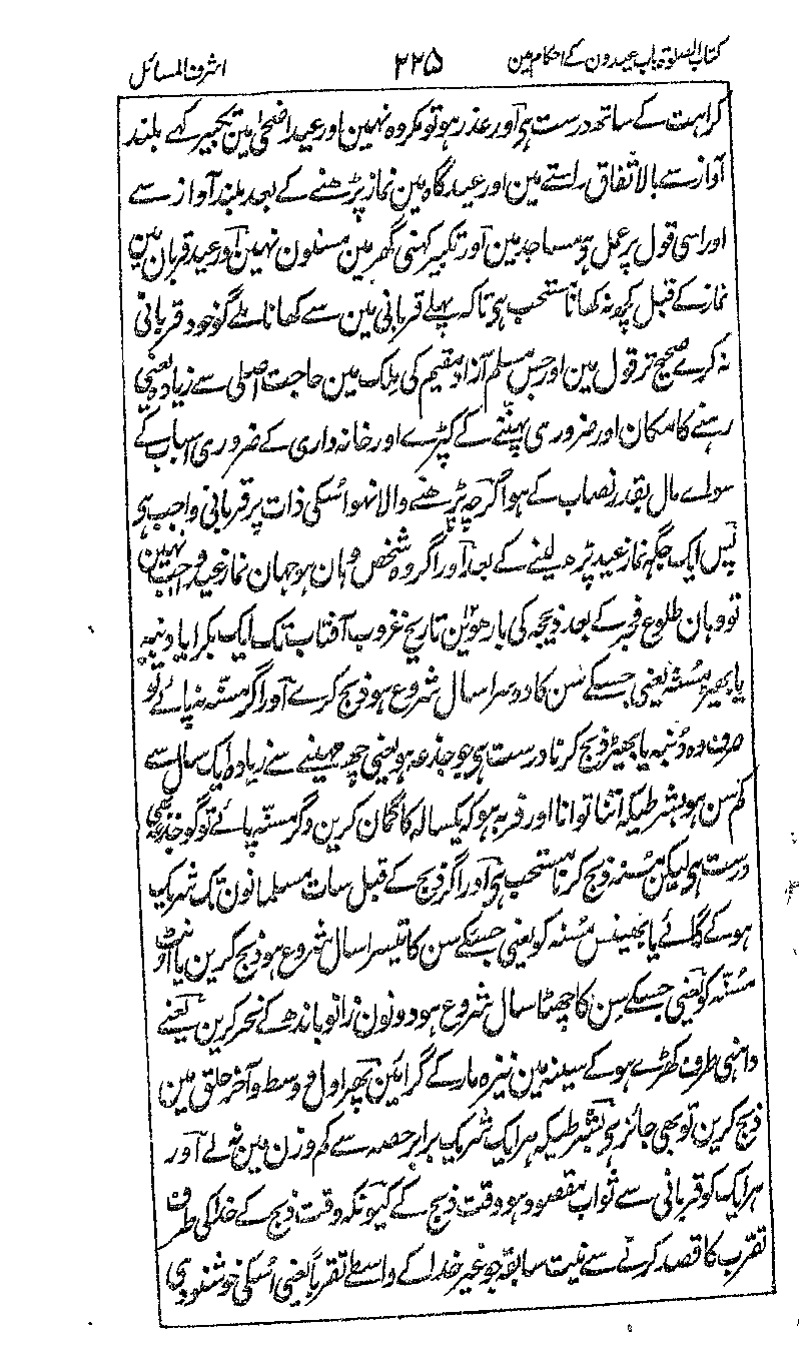 کتاب الصلوۃ باب عیدون کے احکام مین ۲۲۵ اشرف المسائل
کراہت کے ساتھ درست ہی اور عذر ہو تو مکروہ نہین اور عید اضحیٰ مین تکبیر کہے بلند
آواز سے بالاتفاق راستے مین اور عیدگاہ مین نماز پڑھنے کے بعد بلند آواز سے
اور اسی قول پر عمل ہو مساجد مین اور تکبیر کہنی گھر مین مسنون نہین اور عید قربان مین
نماز کے قبل کچھ نہ کھانا مستحب ہی تاکہ پہلے قربانی مین سے کھانا ملے گو خود قربانی
نہ کرے صحیح تر قول مین اور جس مسلم آزاد مقیم کی ملک مین حاجت اصلی سے زیادہ یعنی
رہنے کا مکان اور ضروری پہننے کے کپڑے اور خانہ داری کے ضروری اسباب کے
سواے مال بقدر نصاب کے ہو اگرچہ بڑھنے والا نہو اسکی ذات پر قربانی واجب ہی
پس ایک جگہ نماز عید پڑھ لینے کے بعد اور اگر وہ شخص وہان ہو جہان نماز عید واجب نہین
تو وہان طلوع فجر کے بعد ذیحجہ کی بارھوین تاریخ غروب آفتاب تک ایک بکرا یا دنبہ
یا بھیڑ مسنہ یعنی جسکے سن کا دوسرا سال شروع ہو ذبح کرے اور اگر مسنہ نہ پائے تو
صرف وہ دنبہ یا بھیڑ ذبح کرنا درست ہی جو جذعہ ہو یعنی چھ مہینے سے زیادہ ایک سال سے
کم سن ہو بشرطیکہ اتنا توانا اور فربہ ہو کہ یکسالہ کا گمان کرین وگر مسنہ پائے تو گو جذعہ بھی
درست ہی لیکن مسنہ ذبح کرنا مستحب ہی اور اگر ذبح کے قبل سات مسلمانون تک شریک
ہو کے گائے یا بھینس مسنہ کو یعنی جسکے سن کا تیسرا سال شروع ہو ذبح کرین یا اونٹ
مسنہ کو یعنی جسکے سن کا چھٹا سال شروع ہو دونون زانو باندھ کے نحر کرین یعنے
داہنی طرف کھڑے ہو کے سینہ مین نیزہ مار کے گرائین پھر اول و وسط و آخر حلق مین
ذبح کرین تو بھی جائز ہی بشرطیکہ ہر ایک شریک برابر حصہ سے کم وزن مین نہ لے اور
ہر ایک کو قربانی سے ثواب مقصود ہو وقت ذبح کے کیونکہ وقت ذبح کے خدا کی طرف
تقرب کا قصد کرنے سے نیت سابقہ جو غیر خدا کے واسطے تقرباً یعنی اسکی خوشنودی